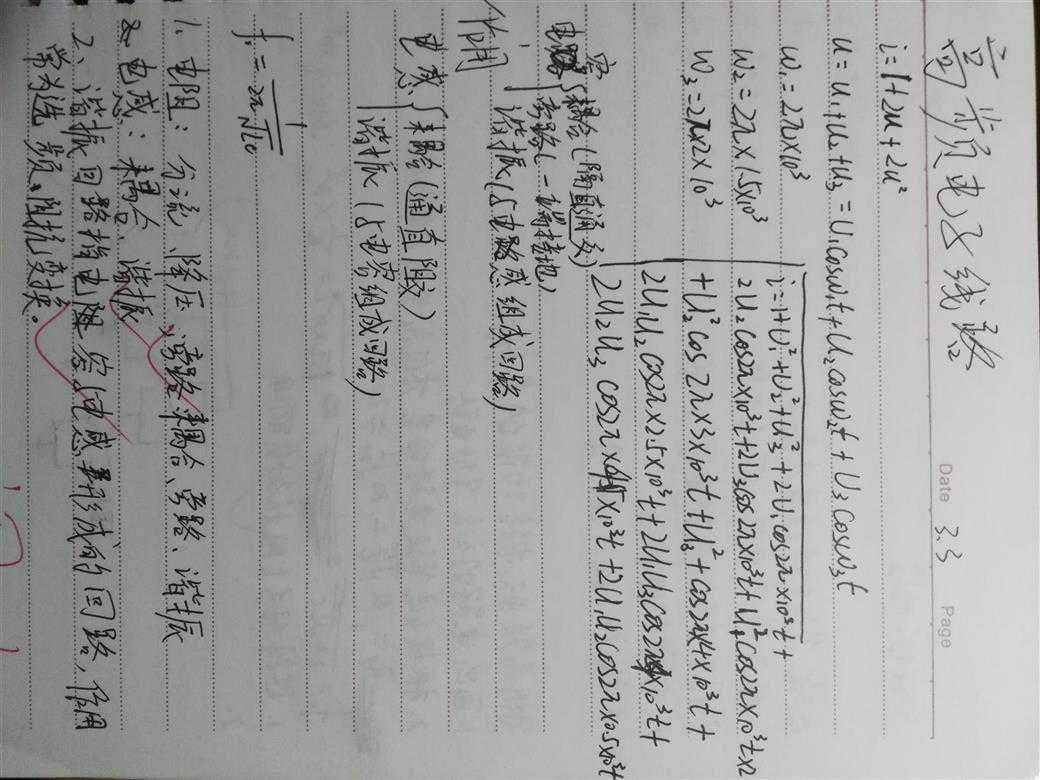 Date 3.3 Page
高频电子线路
i=1+2u+2u²
u=u₁+u₂+u₃=U₁cosω₁t+U₂cosω₂t+U₃cosω₃t
ω₁=2π×10³
ω₂=2π×1.5×10³
ω₃=2π×2×10³
i=1+U₁²+U₂²+U₃²+2U₁cos2π×10³t+
2U₂cos2π×10³t+2U₃cos2π×10³t+U₁²cos2π×10³t×2
+U₂²cos2π×3×10³t+U₃²+cos2π×4×10³t+
2U₁U₂cos2π×2.5×10³t+2U₁U₃cos2π×10³t+
2U₂U₃cos2π××10³t+2U₁U₂cos2π×0.5×10³t
电容 耦合(隔直通交)
旁路(一端接地)
作用 谐振(与电感组成回路)
电感 耦合(通直阻交)
谐振(与电容组成回路)
1、电阻:分流、降压 电容:耦合、旁路、谐振
电感:耦合、谐振
2、谐振回路指电容与电感形成的回路,作用
常为选频、阻抗变换。